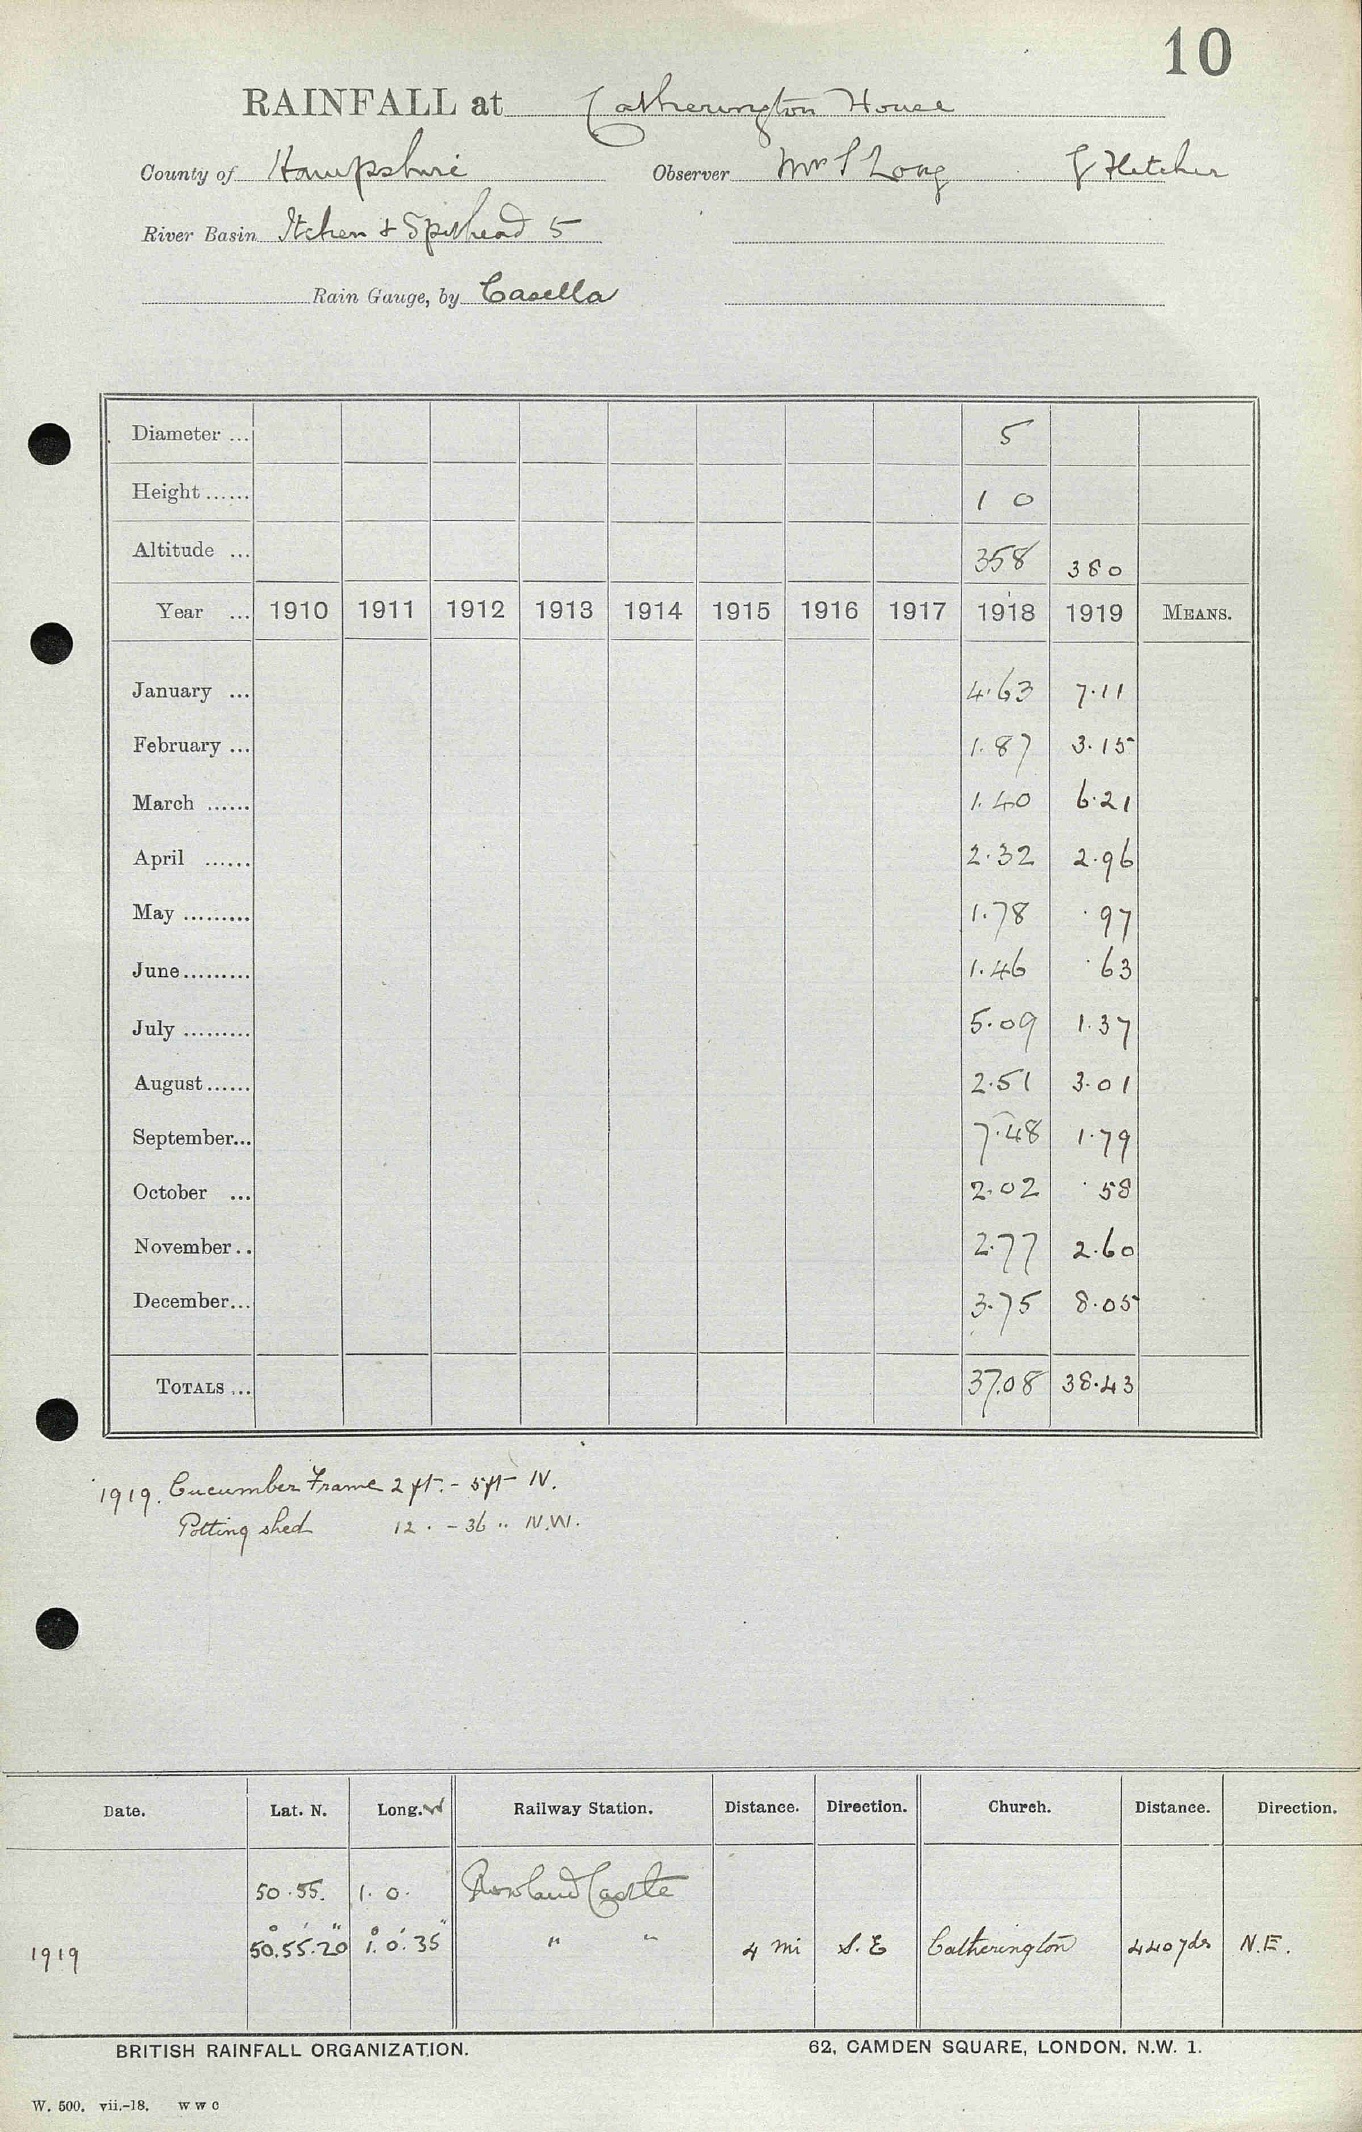 10
RAINFALL at Catherington House
County of Hampshire Observer Mr S Long G Fletcher
River Basin Itchen & Spithead 5
Rain Gauge, by Casella
Diameter ... 5
Height ...... 1 0
Altitude ... 358 380
Year ... 1910 1911 1912 1913 1914 1915 1916 1917 1918 1919 MEANS.
January ... 4.63 7.11
February ... 1.87 3.15
March ...... 1.40 6.21
April ...... 2.32 2.96
May ......... 1.78 .97
June......... 1.46 .63
July ......... 5.09 1.37
August ...... 2.51 3.01
September... 7.48 1.79
October ... 2.02 .58
November.. 2.77 2.60
December... 3.75 8.05
TOTALS ... 37.08 38.43
1919. Cucumber Frame 2 ft. - 5 ft N.
Potting shed 12 . - 36 " N.W.
Date. Lat. N. Long. W Railway Station. Distance. Direction. Church. Distance. Direction.
50.55. 1. 0. Rowland Castle
1919 50°.55'.20" 1°.0'.35" " " 4 mi S.E Catherington 440 yds N.E.
BRITISH RAINFALL ORGANIZATION. 62, CAMDEN SQUARE, LONDON. N.W. 1.
W. 500. vii.-18. W W C